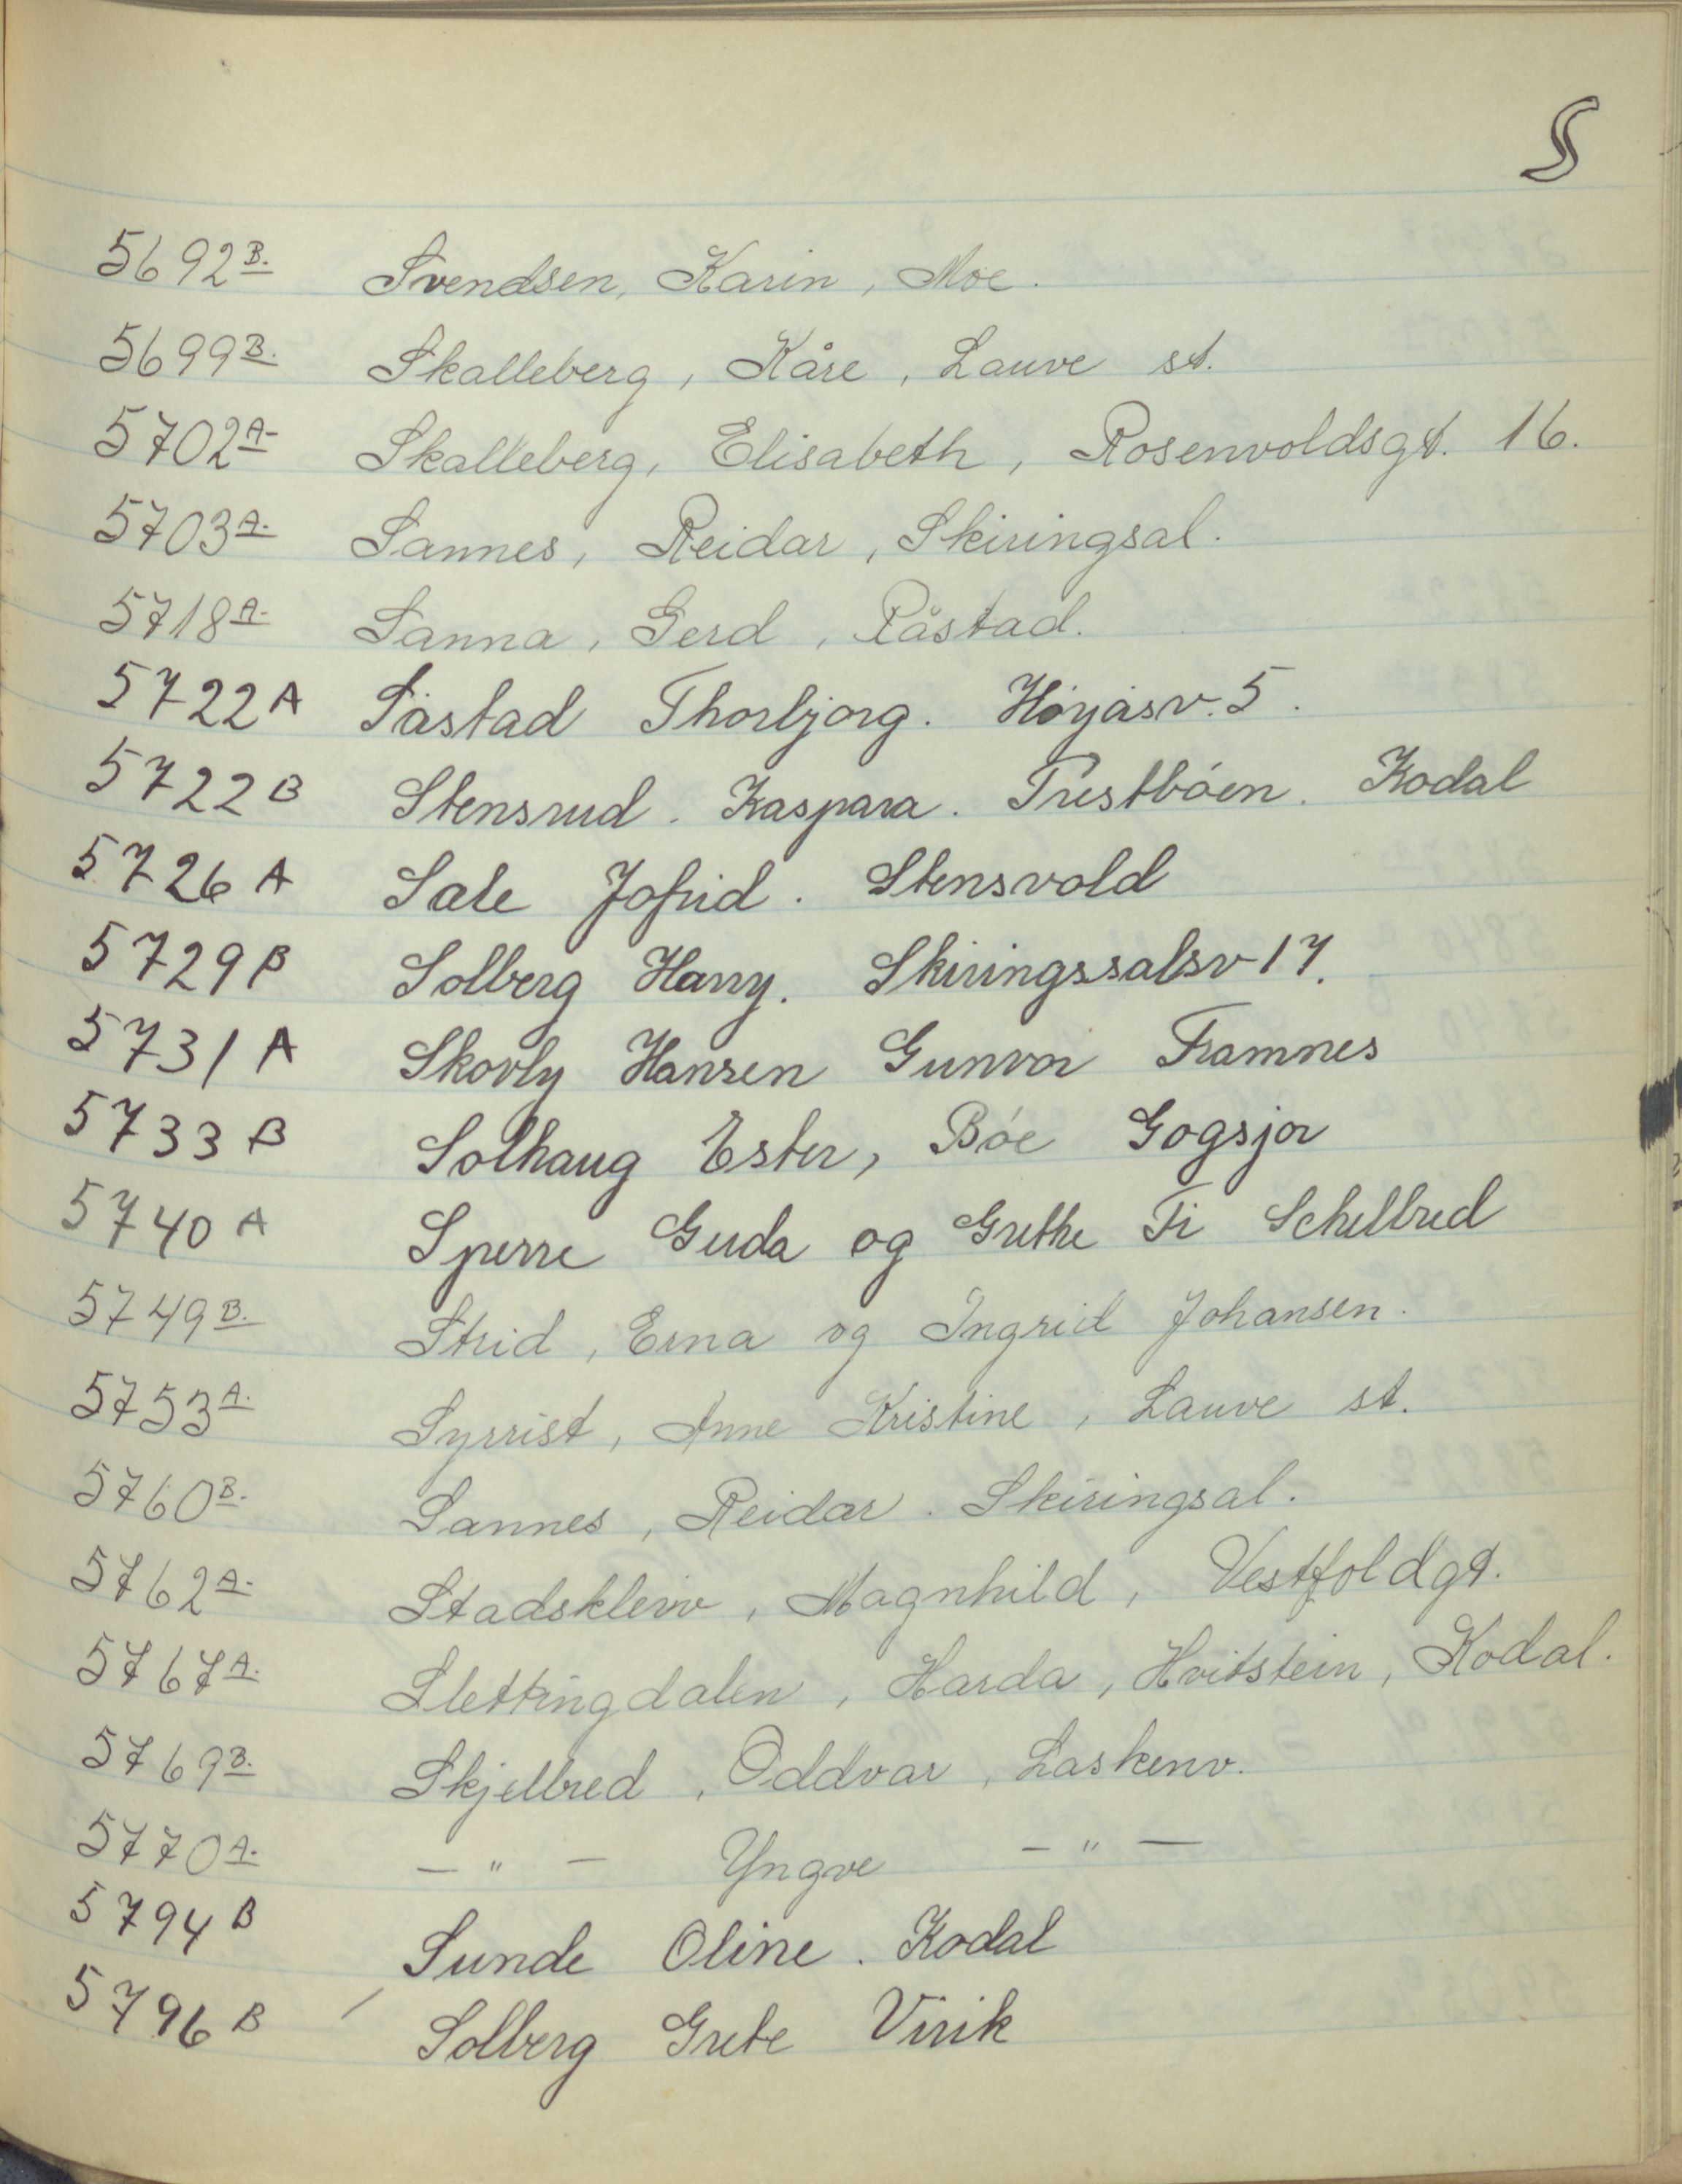 S
5692 B. Svendsen, Karin, Moe.
5699 B. Skalleberg, Kåre, Lauve st.
5702 A- Skalleberg, Elisabeth, Rosenvoldsgt. 16.
5703 A. Sannes, Reidar, Skiringsal.
5718 A. Sanna, Gerd, Råstad.
5722 A Såstad Thorbjørg. Høyåsv. 5.
5722 B Stensrud. Kaspara. Prestbøen. Kodal
5726 A Sale Jofrid. Stensvold
5729 B Solberg Harry. Skiringssalsv 17.
5731 A Skovly Hansen Gunvor Framnes
5733 B Solhaug Ester, Bøe Gogsjør
5740 A Sperre Guda og Grethe Fr Schelbred
5749 B. Strid, Erna og Ingrid Johansen.
5753 A. Syrrist, Anne Kristine, Lauve st.
5760 B. Sannes, Reidar. Skiringsal.
5762 A. Stadskleiv, Magnhild, Vestfoldgt.
5767 A. Slettingdalen, Harda, Hvitstein, Kodal.
5769 B. Skjelbred, Oddvar, Laskenv.
5770 A. — " — Yngve — " —
5794 B Sunde Oline. Kodal
5796 B / Solberg Grete Virik